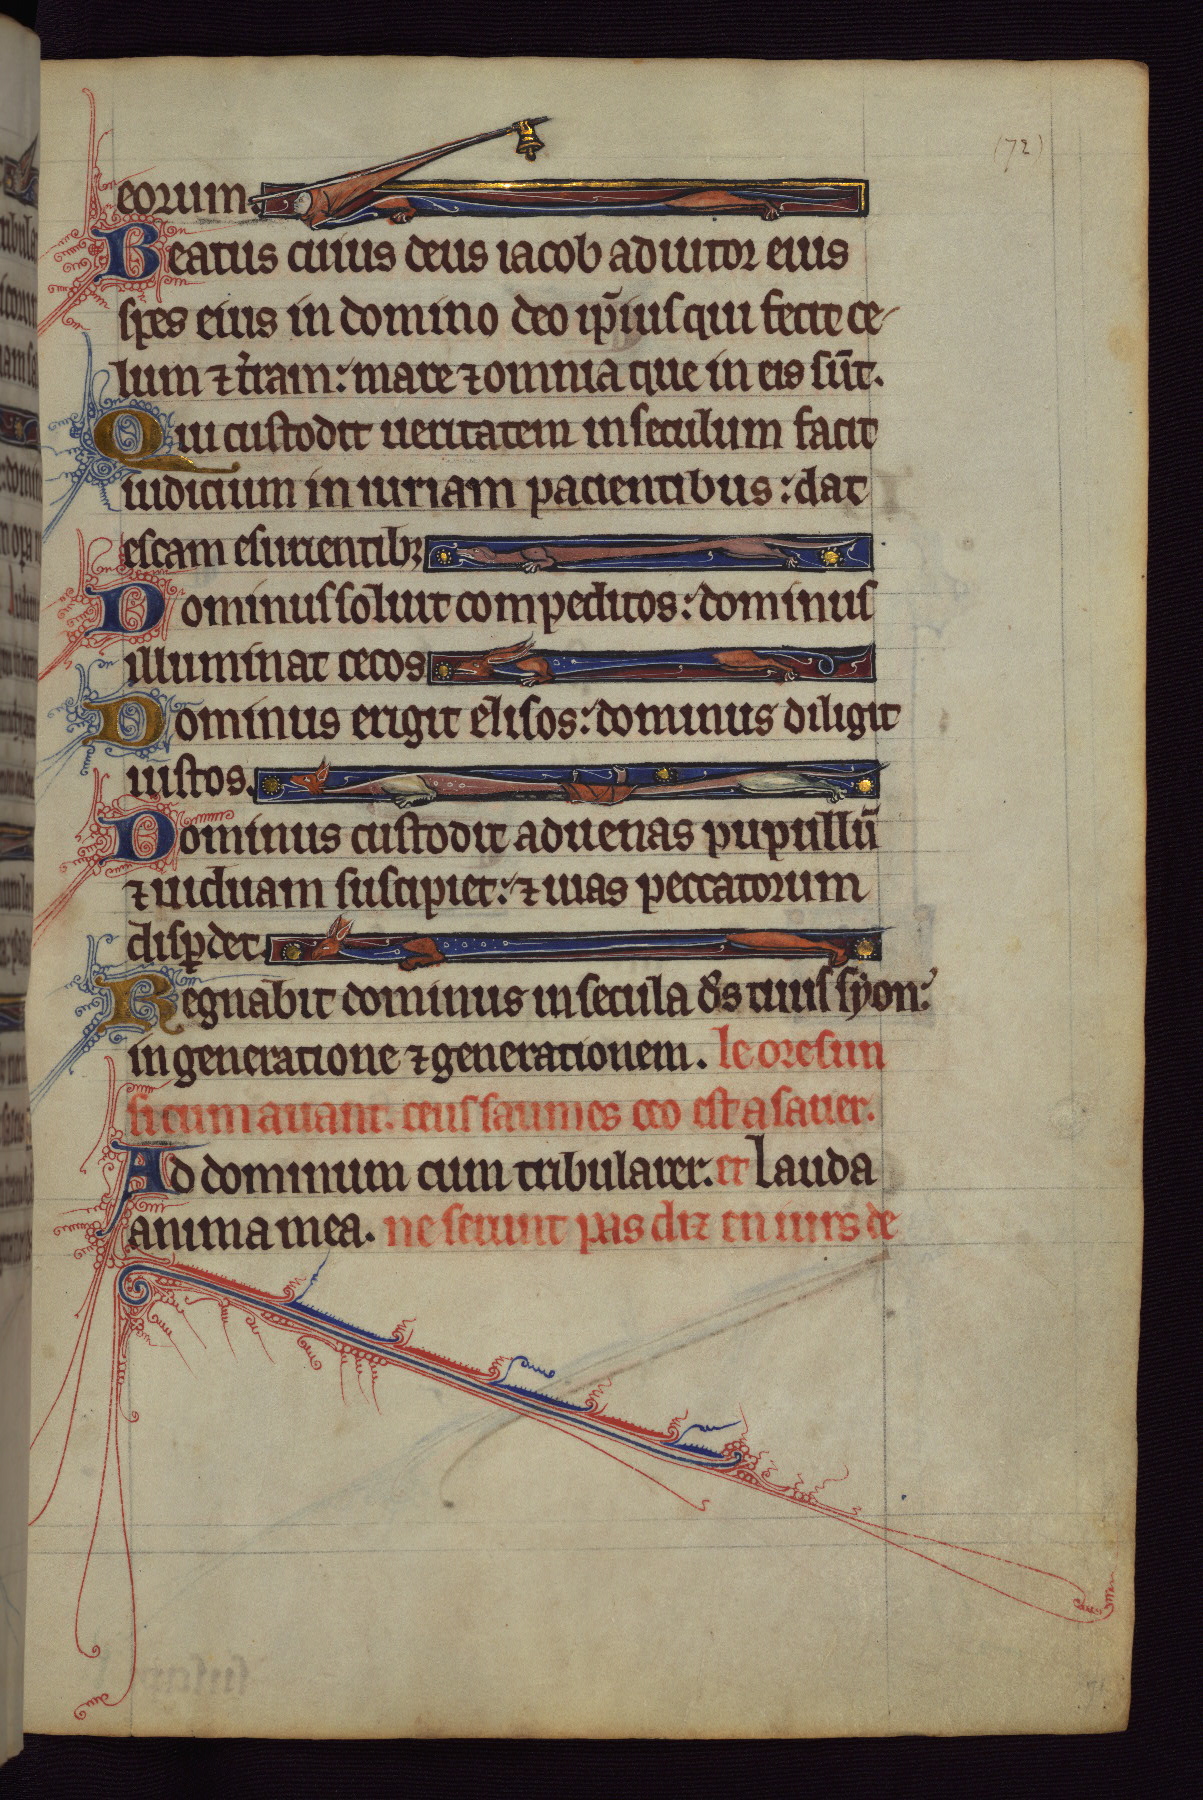 (72)
eorum.
Beatus cuius deus iacob adiutor eius
spes eius in domino deo ip̄ius qui fecit ce-
lum ⁊ t̕ram: mare ⁊ omnia que in eis sūt.
Qui custodit ueritatem in seculum facit
iudicium in iuriam pacientibus: dat
escam esurientibꝫ
Dominus soluit compeditos: dominus
illuminat cecos
Dominus erigit elisos: dominus diligit
iustos.
Dominus custodit aduenas pupullū
⁊ uiduam suscipiet: ⁊ uias peccatorum
disꝑdet.
Regnabit dominus in secula d̄s tuus syon:
in generatione ⁊ generationem. le oresun
si cum auant. ceus saumes ceo est a sauer.
Ad dominum cum tribularer. et Lauda
anima mea. ne serunt pas diz en iurs de